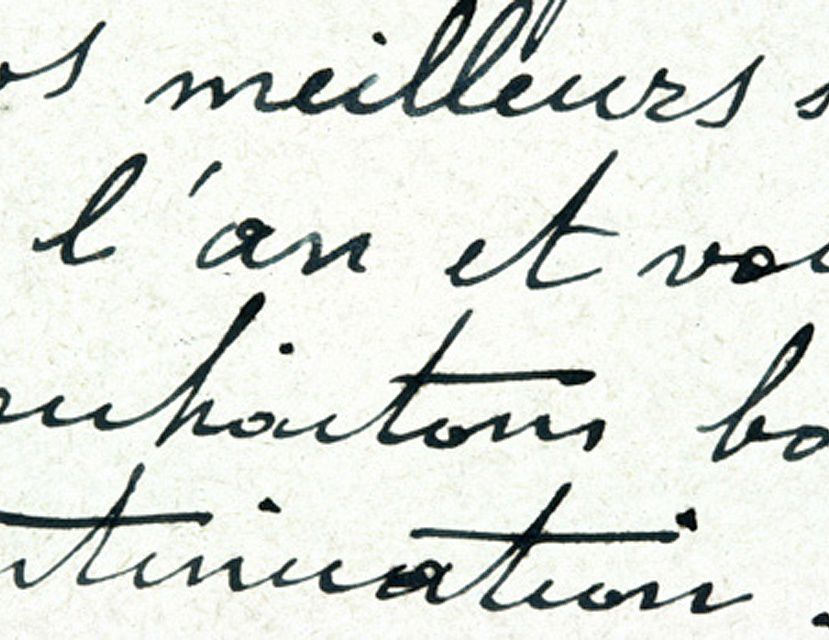 os meilleurs s
l'an et vou
ouhaitons bo
ntinuation.